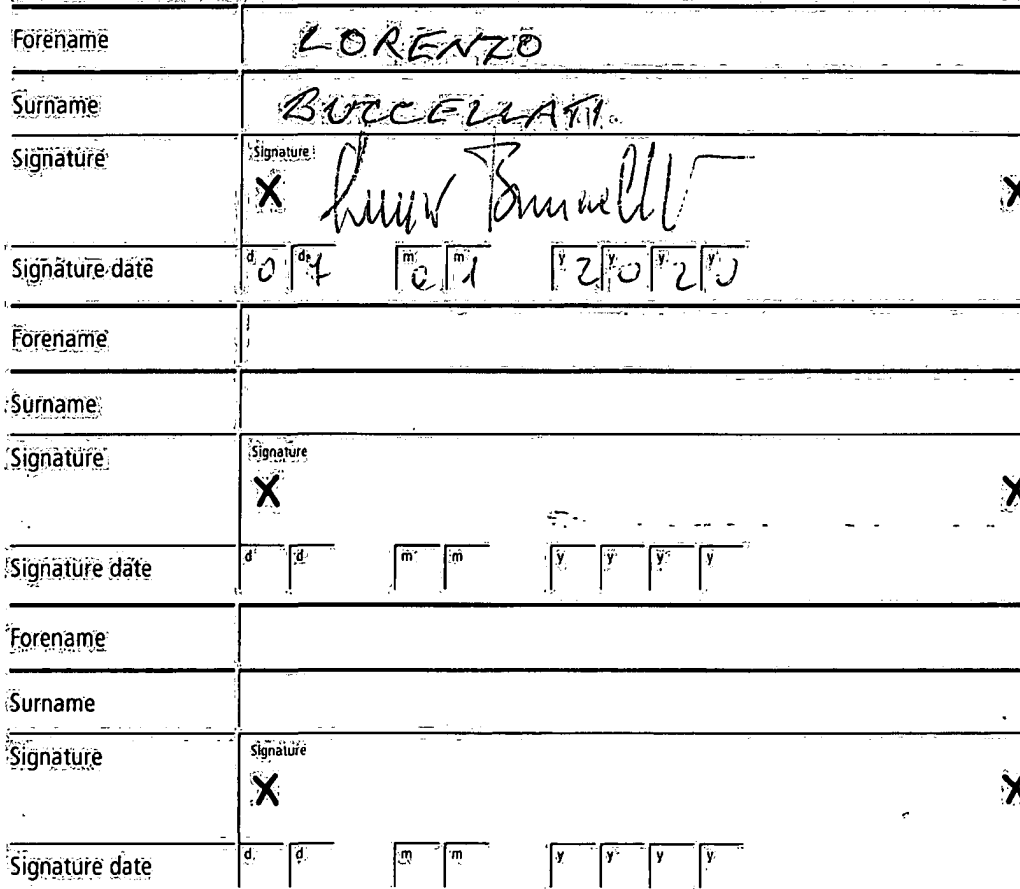 Forename LORENZO
Surname BUCCELLATI
Signature Signature X X
Signature date d 0 d 7 m 0 m 1 y 2 y 0 y 2 y 0
Forename
Surname
Signature Signature X X
Signature date d d m m y y y y
Forename
Surname
Signature Signature X X
Signature date d d m m y y y y